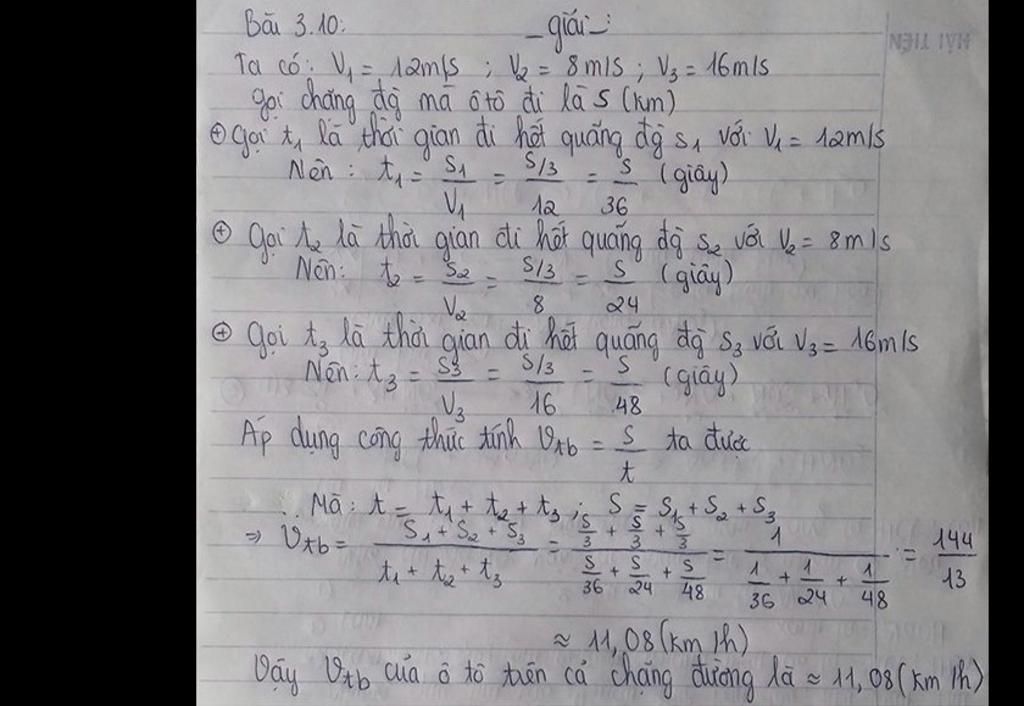 Bài 3.10: _giải_:
Ta có: V₁ = 12m/s ; V₂ = 8m/s ; V₃ = 16m/s
gọi chặng đg mà ôtô đi là S (km)
⊕ Gọi t₁ là thời gian đi hết quãng đg s₁ với V₁ = 12m/s
Nên : t₁ = S₁/V₁ = (S/3)/12 = S/36 (giây)
⊕ Gọi t₂ là thời gian đi hết quãng đg s₂ với V₂ = 8m/s
Nên: t₂ = S₂/V₂ = (S/3)/8 = S/24 (giây)
⊕ Gọi t₃ là thời gian đi hết quãng đg s₃ với V₃ = 16m/s
Nên: t₃ = S₃/V₃ = (S/3)/16 = S/48 (giây)
Áp dụng công thức tính Vtb = S/t ta được
Mà: t = t₁ + t₂ + t₃ ; S = S₁ + S₂ + S₃
⇒ Vtb = (S₁ + S₂ + S₃)/(t₁ + t₂ + t₃) = (S/3 + S/3 + S/3)/(S/36 + S/24 + S/48) = 1/(1/36 + 1/24 + 1/48) = 144/13
≈ 11,08 (km/h)
Vậy Vtb của ô tô trên cả chặng đường là ≈ 11,08 (km/h)